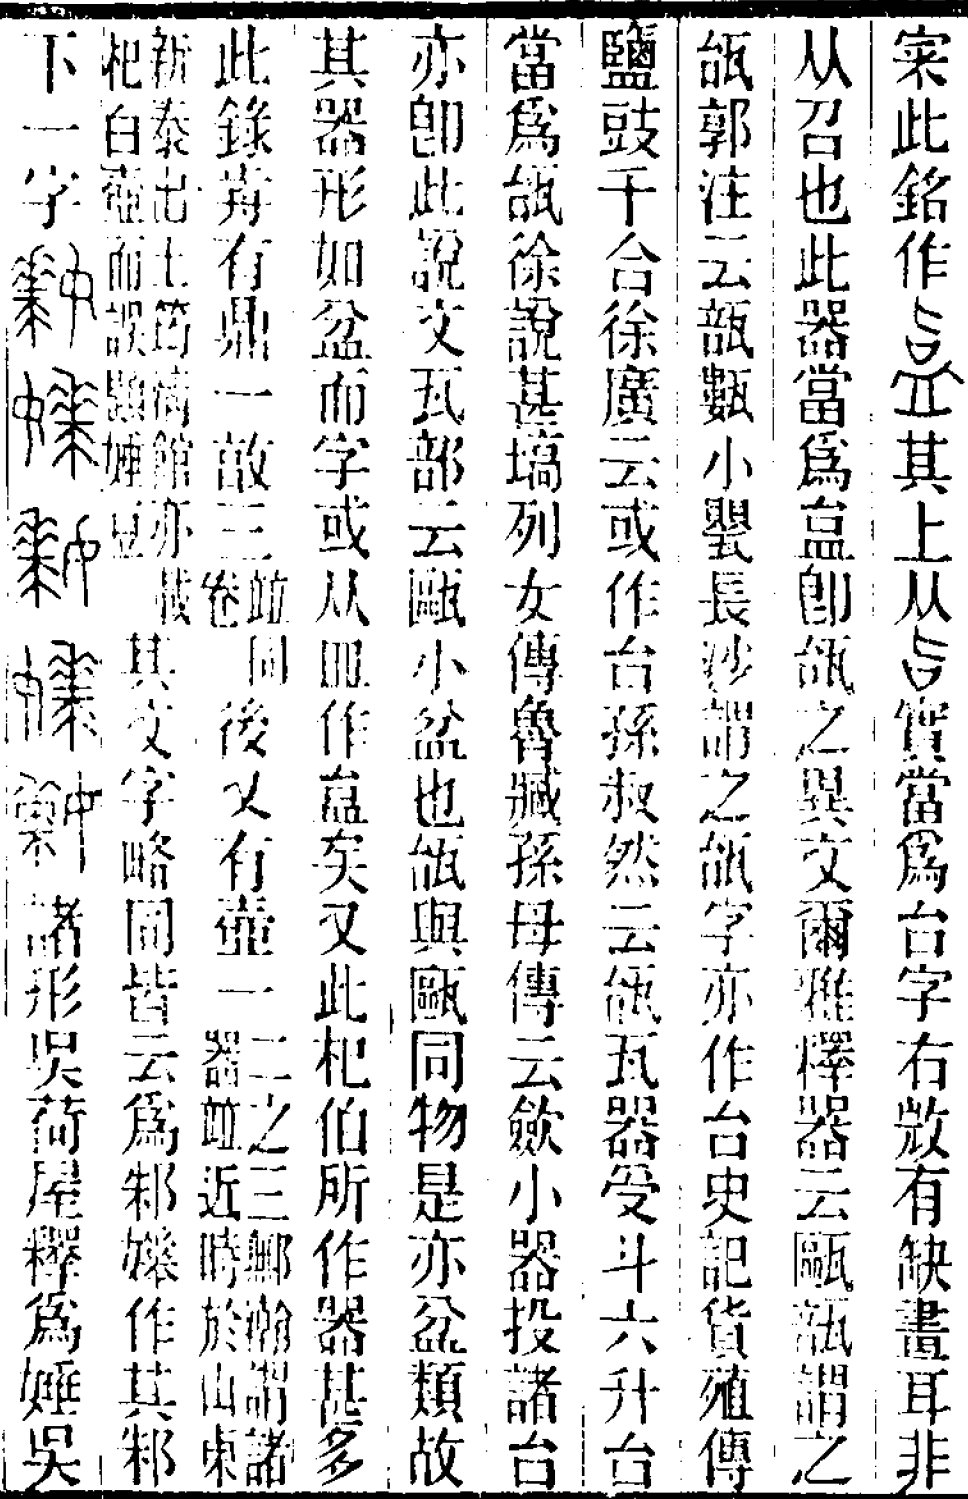 寀此銘作其上从實當爲台字右㪚有缺畫耳非
从召也此器當爲㿽卽瓵之異文爾雅釋器云甌瓿謂之
瓵郭注云瓿甊小罌長沙謂之瓵字亦作台史記貨殖傳
鹽豉千合徐廣云或作台孫叔然云瓵瓦器受斗六升台
當爲瓵徐說甚塙列女傳魯臧孫母傳云斂小器投諸台
亦卽此說文瓦部云甌小盆也瓵與甌同物是亦盆類故
其器形如盆而字或从皿作㿽矣又此杞伯所作器甚多
此錄有鼎一敦三竝同卷後又有壺一二之三器竝近時於山東
新泰出土筠清館亦載杞白壺而誤題㜏豆其文字略同皆云爲邾㜏作其邾
下一字諸形吳荷屋釋爲㜏吳